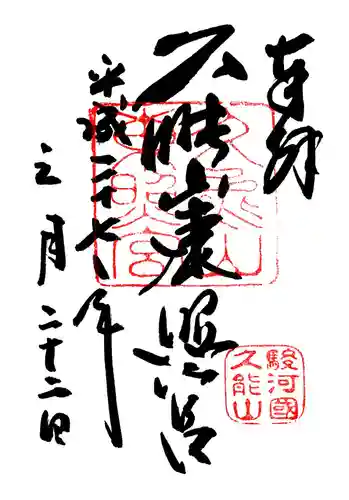 奉拝
久能山東照宮
平成二十七年
三月二十二日
久能山
東照宮
駿河國
久能山